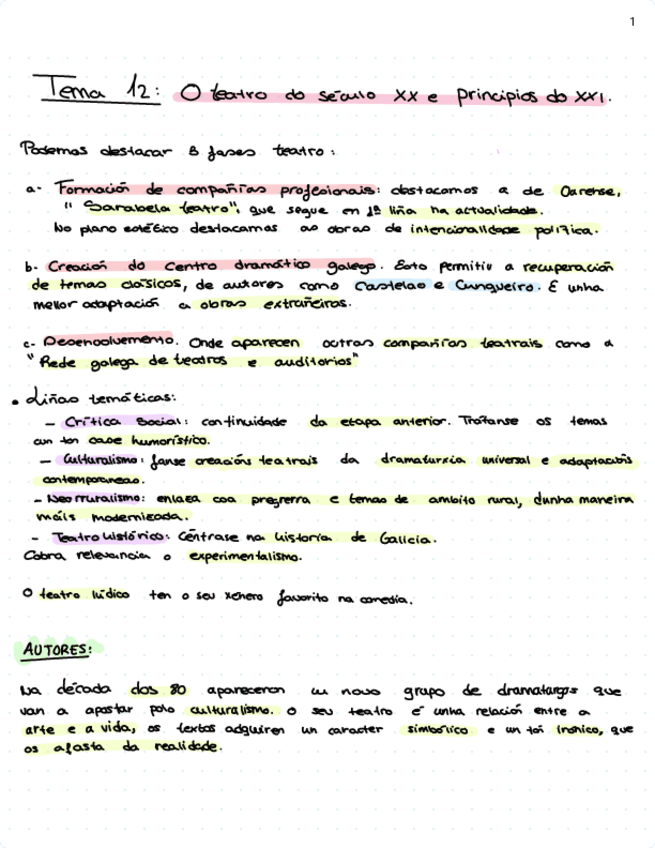 1
Tema 12: O teatro do século XX e principios do XXI.
Podemos destacar 3 fases teatro:
a- Formación de compañías profesionais: destacamos a de Ourense,
"Sarabela teatro", que segue en 1ª liña na actualidade.
No plano estético destacamos as obras de intencionalidade política.
b- Creación do Centro dramático galego. Esto permitiu a recuperación
de temas clásicos, de autores como Castelao e Cunqueiro. E unha
mellor adaptación a obras extranxeiras.
c- Desenvolvemento. Onde aparecen outras compañías teatrais como a
"Rede galega de teatros e auditorios"
• Liñas temáticas:
- Crítica Social: continuidade da etapa anterior. Trátanse os temas
cun ton case humorístico.
- Culturalismo: fanse creacións teatrais da dramaturxia universal e adaptacións
contemporáneas.
- Neorruralismo: enlaza coa pregerra e temas de ambito rural, dunha maneira
máis modernizada.
- Teatro histórico: Céntrase na historia de Galicia.
Cobra relevancia o experimentalismo.
O teatro lúdico ten o seu xénero favorito na comedia.
AUTORES:
Na década dos 80 apareceron un novo grupo de dramaturgos que
van a apostar polo culturalismo. O seu teatro é unha relación entre a
arte e a vida, os textos adquiren un caracter simbólico e un ton irónico, que
os afasta da realidade.